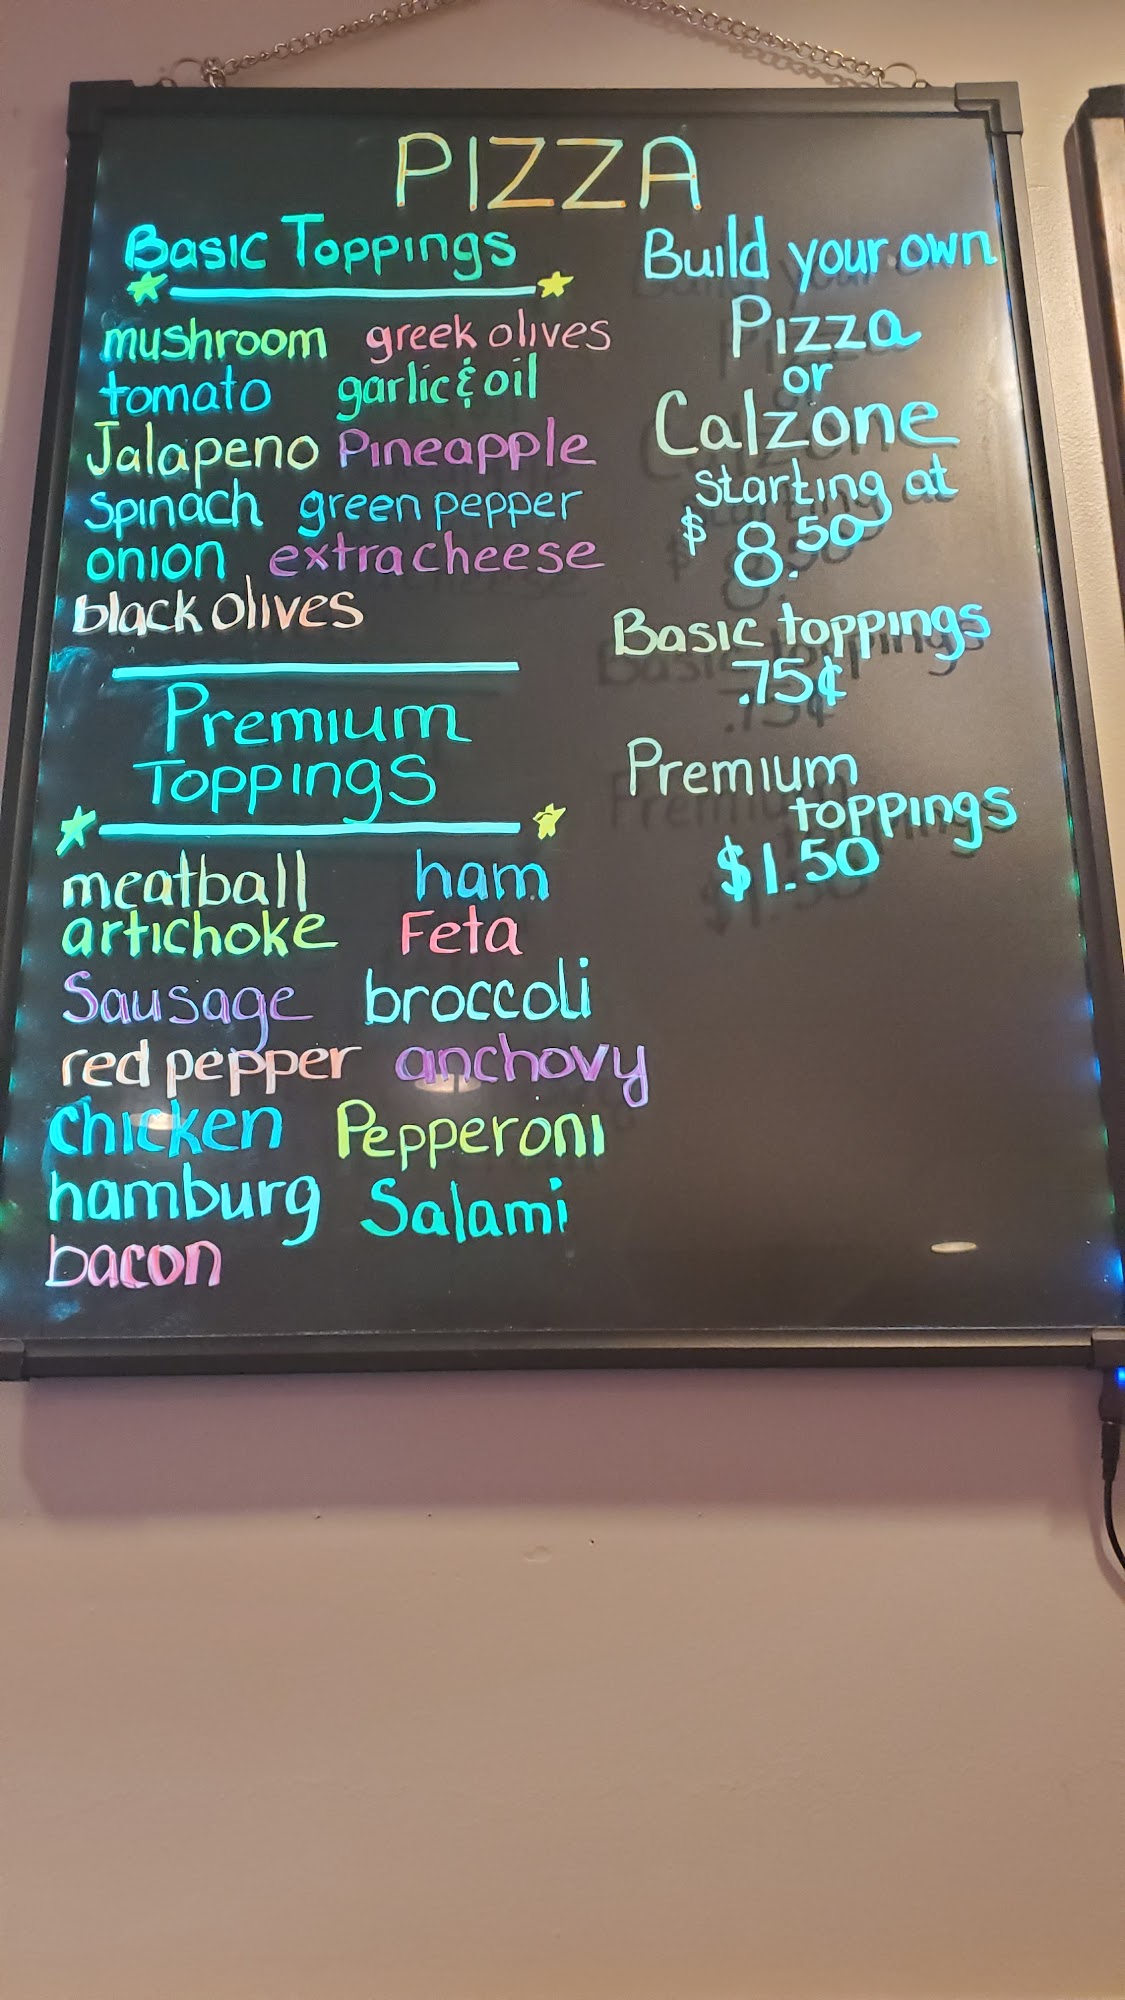 PIZZA
Basic Toppings
mushroom greek olives
tomato garlic & oil
Jalapeno Pineapple
spinach green pepper
onion extra cheese
black olives
Premium
Toppings
meatball ham
artichoke Feta
Sausage broccoli
red pepper anchovy
chicken Pepperoni
hamburg Salami
bacon
Build your own
Pizza
or
Calzone
starting at
$8.50
Basic toppings
.75¢
Premium
toppings
$1.50